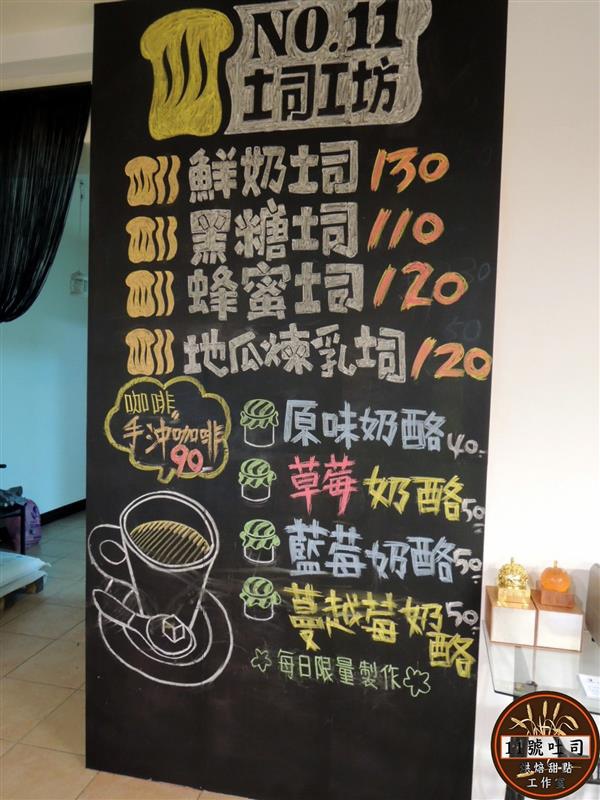 NO.11
土司工坊
鮮奶土司 130
黑糖土司 110
蜂蜜土司 120
地瓜煉乳土司 120
咖啡
手沖咖啡
90
原味奶酪 40.-
草莓奶酪 50.-
藍莓奶酪 50.-
蔓越莓奶酪 50.-
每日限量製作
11號吐司
烘焙甜點
工作室